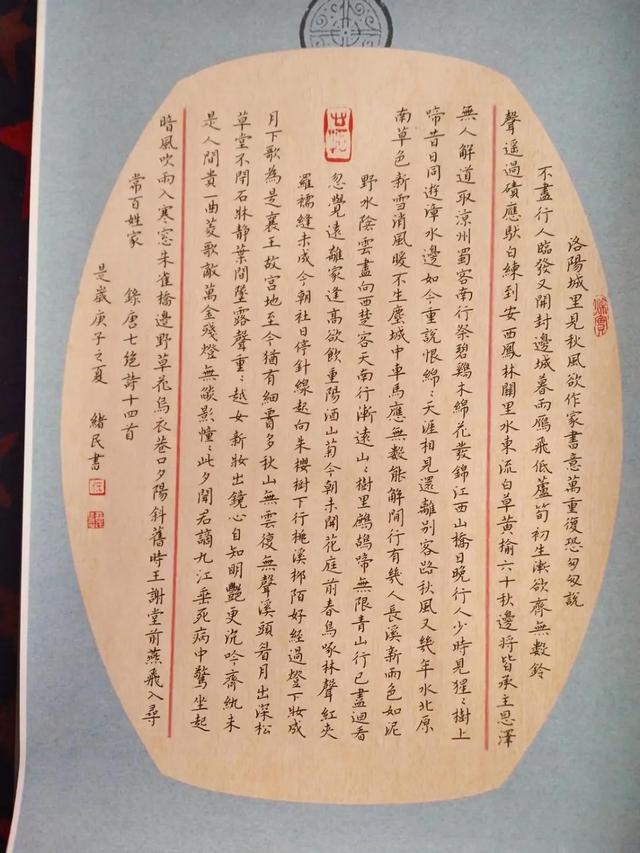 洛陽城里見秋風欲作家書意萬重復恐匆匆說
不盡行人臨發又開封邊城暮雨鴈飛低蘆筍初生漸欲齊無數鈴
聲遙過磧應馱白練到安西鳳林關里水東流白草黃榆六十秋邊將皆承主恩澤
無人解道取涼州蜀客南行祭碧鷄木綿花發錦江西山橋日晚行人少時見猩〻樹上
啼昔日同遊漳水邊如今重說恨綿〻天涯相見還離別客路秋風又幾年水北原
南草色新雪消風暖不生塵城中車馬應無數能解閒行有幾人長溪新雨色如泥
野水陰雲盡向西楚客天南行漸遠山〻樹里鷓鴣啼無限青山行已盡迴看
忽覺遠離家逢高欲飲重陽酒山菊今朝未開花庭前春鳥啄林聲紅夾
羅襦縫未成今朝社日停針線起向朱櫻樹下行桃溪柳陌好經過燈下妝成
月下歌為是襄王故宮地至今猶有細腰多秋山無雲復無聲溪頭看月出深松
草堂不閉石牀靜葉間墜露聲重〻越女新妝出鏡心自知明艷更沉吟齊紈未
是人間貴一曲菱歌敵萬金殘燈無燄影憧〻此夕聞君謫九江垂死病中驚坐起
暗風吹雨入寒窓朱雀橋邊野草花烏衣巷口夕陽斜舊時王謝堂前燕飛入尋
常百姓家 錄唐七絕詩十四首
是歲庚子之夏 緒民書